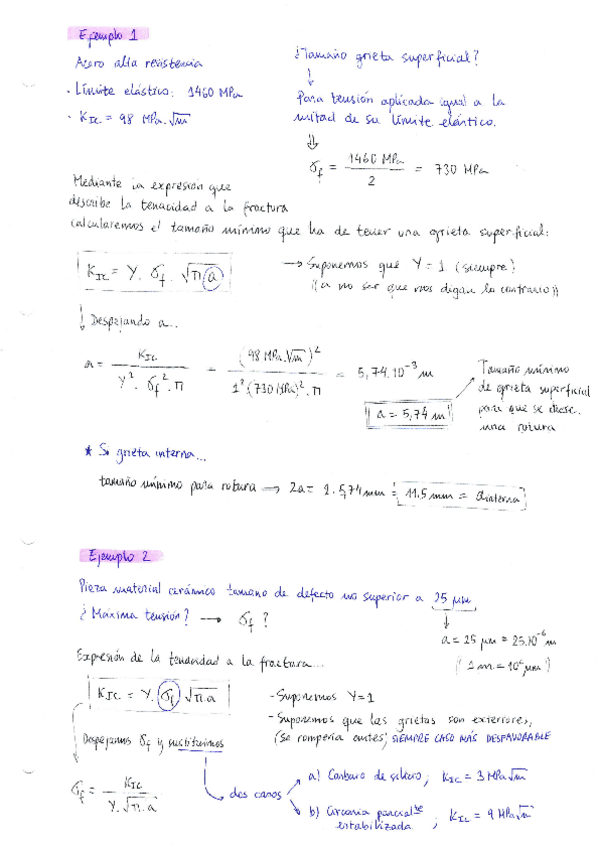 Ejemplo 1
Acero alta resistencia
· Límite elástico: 1460 MPa
· K_IC = 98 MPa·√m
¿Tamaño grieta superficial?
↓
Para tensión aplicada igual a la
mitad de su límite elástico.
⇓
σ_f = 1460 MPa / 2 = 730 MPa
Mediante la expresión que
describe la tenacidad a la fractura
calcularemos el tamaño mínimo que ha de tener una grieta superficial:
K_IC = Y · σ_f · √π a
→ Suponemos que Y = 1 (siempre)
¡¡ a no ser que nos digan lo contrario !!
↓ Despejando a...
a = K_IC / Y² · σ_f² · π = (98 MPa·√m)² / 1² · (730 MPa)² · π = 5,74·10⁻³ m
a = 5,74 m
Tamaño mínimo
de grieta superficial
para que se diese
una rotura
* Si grieta interna...
tamaño mínimo para rotura → 2a = 2 · 5,74 mm = 11.5 mm = a interna
Ejemplo 2
Pieza material cerámico tamaño de defecto no superior a 25 μm
¿Máxima tensión? → σ_f ?
↓
a = 25 μm = 25·10⁻⁶ m
(1 m = 10⁶ μm)
Expresión de la tenacidad a la fractura...
K_IC = Y · σ_f · √π·a
- Suponemos Y = 1
- Suponemos que las grietas son exteriores,
(Se rompería antes; SIEMPRE CASO MÁS DESFAVORABLE
Despejamos σ_f y sustituimos
σ_f = K_IC / Y·√π·a
→ dos casos
a) Carburo de silicio; K_IC = 3 MPa√m
b) Circonia parcial^te
estabilizada ; K_IC = 9 MPa√m